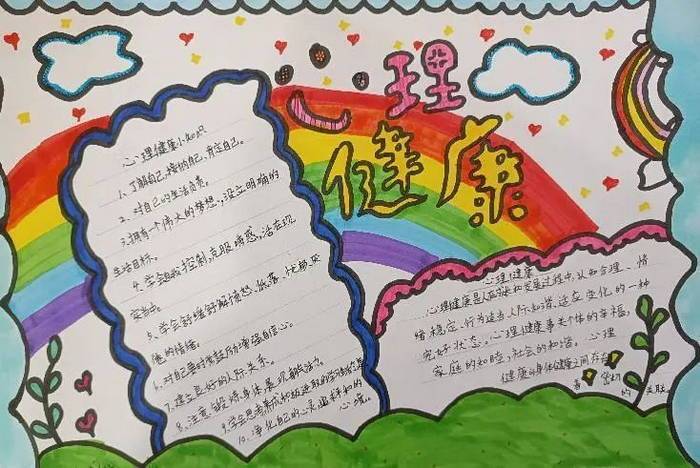 心理健康
心理健康小知识
1、了解自己,接纳自己,肯定自己。
2、对自己的生活负责。
3、拥有一个伟大的梦想,设立明确的
生活目标。
4、学会自我控制,克服诱惑,活在现
实当中。
5、学会舒缓舒解愤怒、低落、忧郁
他的情绪。
6、对自己要时常鼓励增强自信心。
7、建立良好的人际关系。
8、注意锻炼身体展现朝气活力。
9、学会思考养成积极进取的学习
10、净化自己的心灵
心境。
心理健康
心理健康是人在成长和发展过程中,认知合理、情
绪稳定、行为适当、人际和谐、适应变化的一种
完好状态。心理健康事关个体的幸福,
家庭的和睦,社会的和谐。心理
健康与身体健康之间存在
着 密切
的 关联